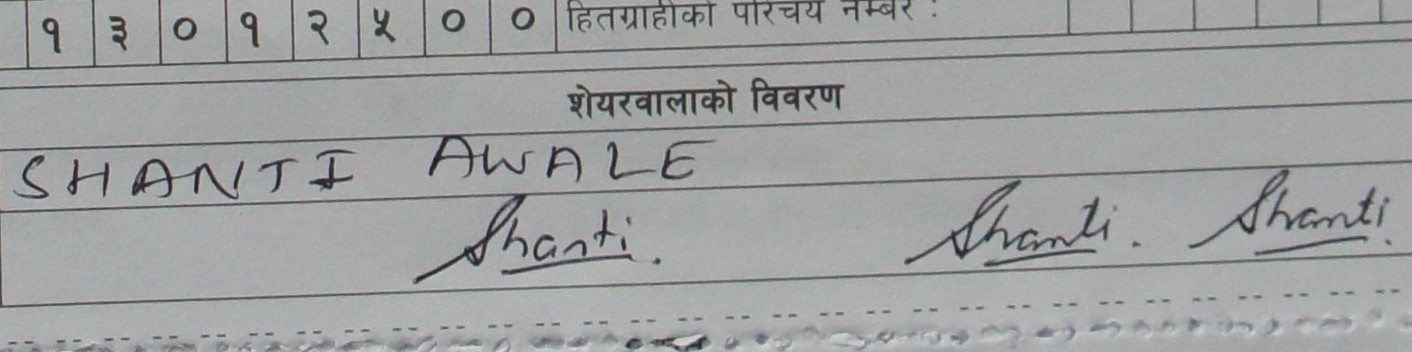 १ ३ ० १ २ ५ ० ० हितग्राहीको परिचय नम्बर :
शेयरवालाको विवरण
SHANTI AWALE
Shanti. Shanti. Shanti.